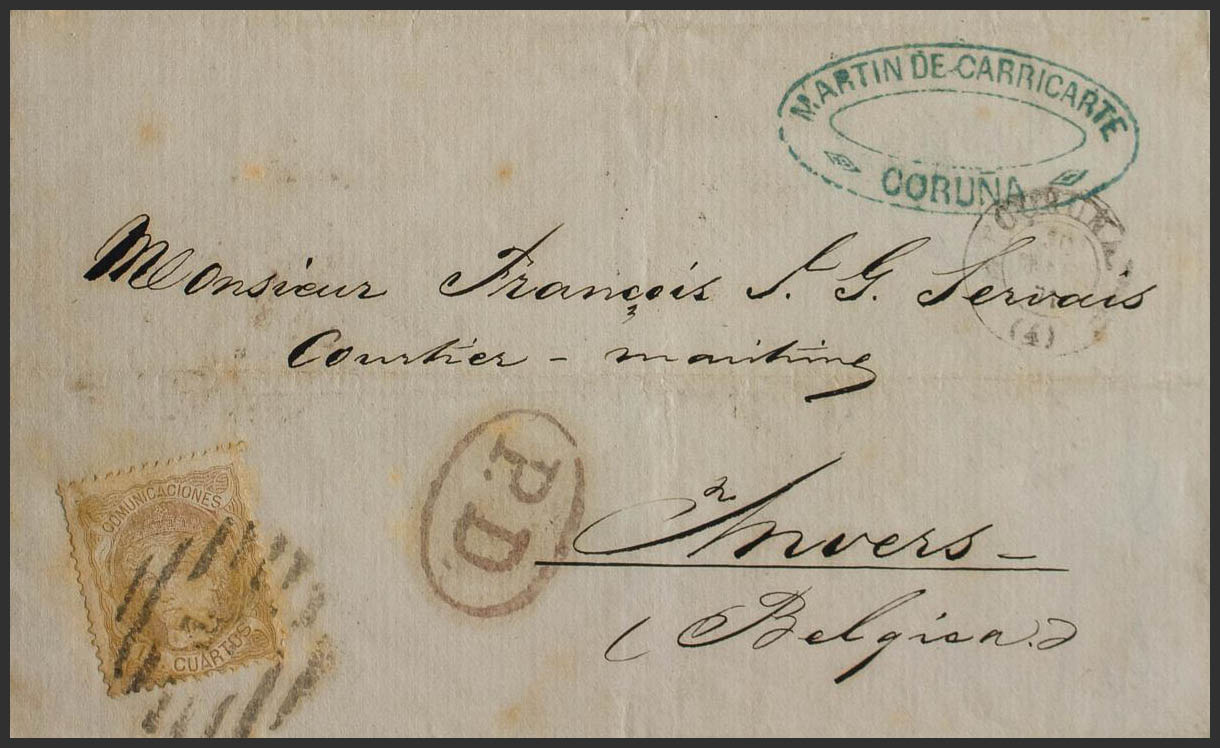 MARTIN DE CARRICARTE
CORUÑA
(4)
Monsieur François S. G. Servais
Courtier - maritime
P.D.
Anvers -
(Belgica.)
COMUNICACIONES
CUARTOS